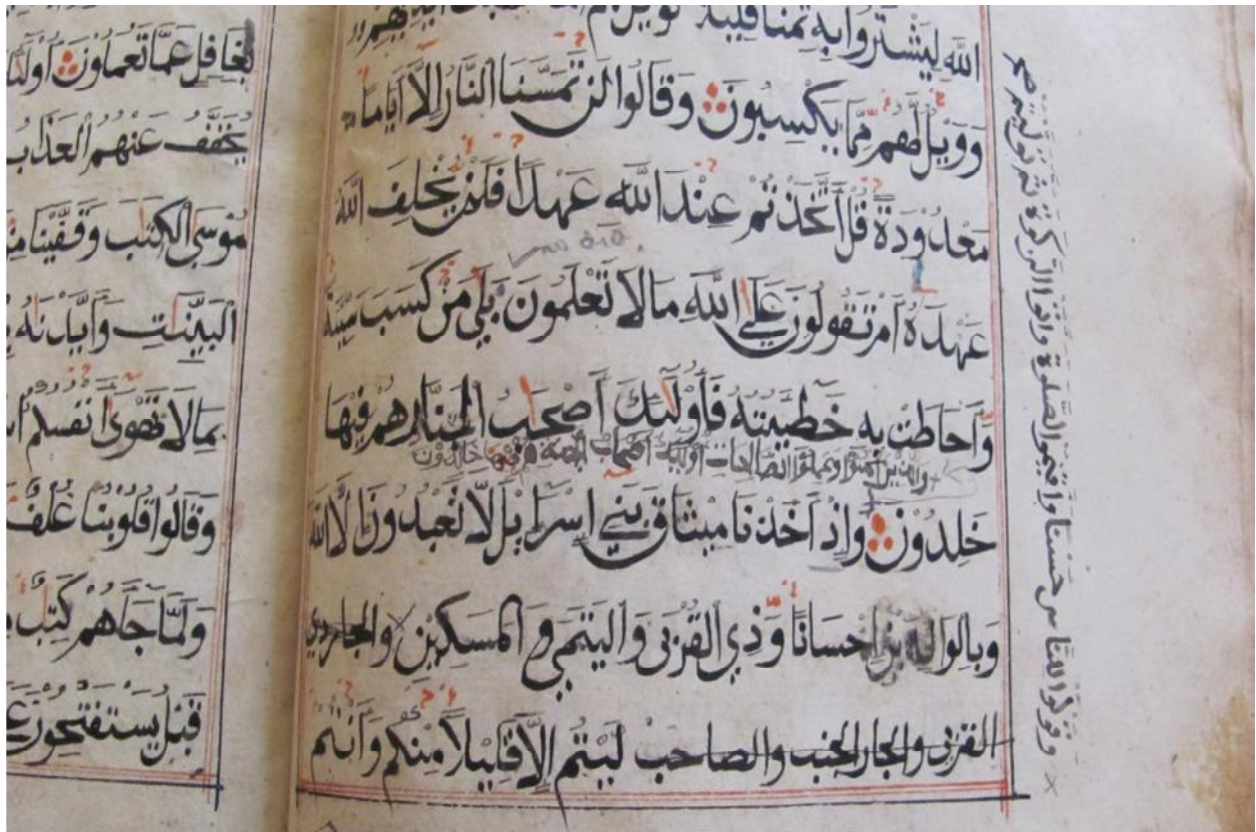 الله ليشتروا به ثمنا قليلا فويل لهم ايديهم
وَوَيْلٌ لَّهُمْ مِّمَّا يَكْسِبُونَ وَقَالُوا لَنْ تَمَسَّنَا النَّارُ اِلَّا اَيَّامًا
مَعْدُوْدَةً قُلْ اَتَّخَذْتُمْ عِنْدَ اللَّهِ عَهْدًا فَلَنْ يُخْلِفَ اللَّهُ
عَهْدَهُ اَمْ تَقُولُونَ عَلَى اللَّهِ مَا لَا تَعْلَمُونَ بَلَى مَنْ كَسَبَ سَيِّئَةً
وَاَحَاطَتْ بِهِ خَطِيئَتُهُ فَاُولَئِكَ اَصْحَابُ النَّارِ هُمْ فِيهَا
والذين امنوا وعملوا الصالحات اولئك اصحاب الجنة هم فيها خالدون
خَلِدُونَ وَاِذْ اَخَذْنَا مِيثَاقَ بَنِي اِسْرَايِلَ لَا تَعْبُدُونَ اِلَّا اللَّهَ
وَبِالوَالِدَيْنِ اِحْسَانًا وَّذِي القُرْبَى وَاليَتَمَى وَالمَسَكِيْنِ وَالجَارِ ذِي
القربى والجار الجنب والصاحب لَيْتُمْ اِلَّا قَلِيْلًا مِنْكُمْ وَاَنْتُمْ
وقولوا للناس حسنا واقيموا الصلوة واتوا الزكوة ثم توليتم صح
بِغَافِلٍ عَمَّا تَعْمَلُونَ
يُخَفَّفُ عَنْهُمُ العَذَابُ
مُوْسَى الكِتَبَ وَقَفَّيْنَا
البَيِّنَتِ وَاَيَّدْنَهُ
بِمَا لَا تَهْوَى اَنْفُسُكُمُ
وَقَالُوا قُلُوبُنَا غُلْفٌ
وَلَمَّا جَاءَهُمْ كِتَبٌ
قَبْلُ يَسْتَفْتِحُونَ